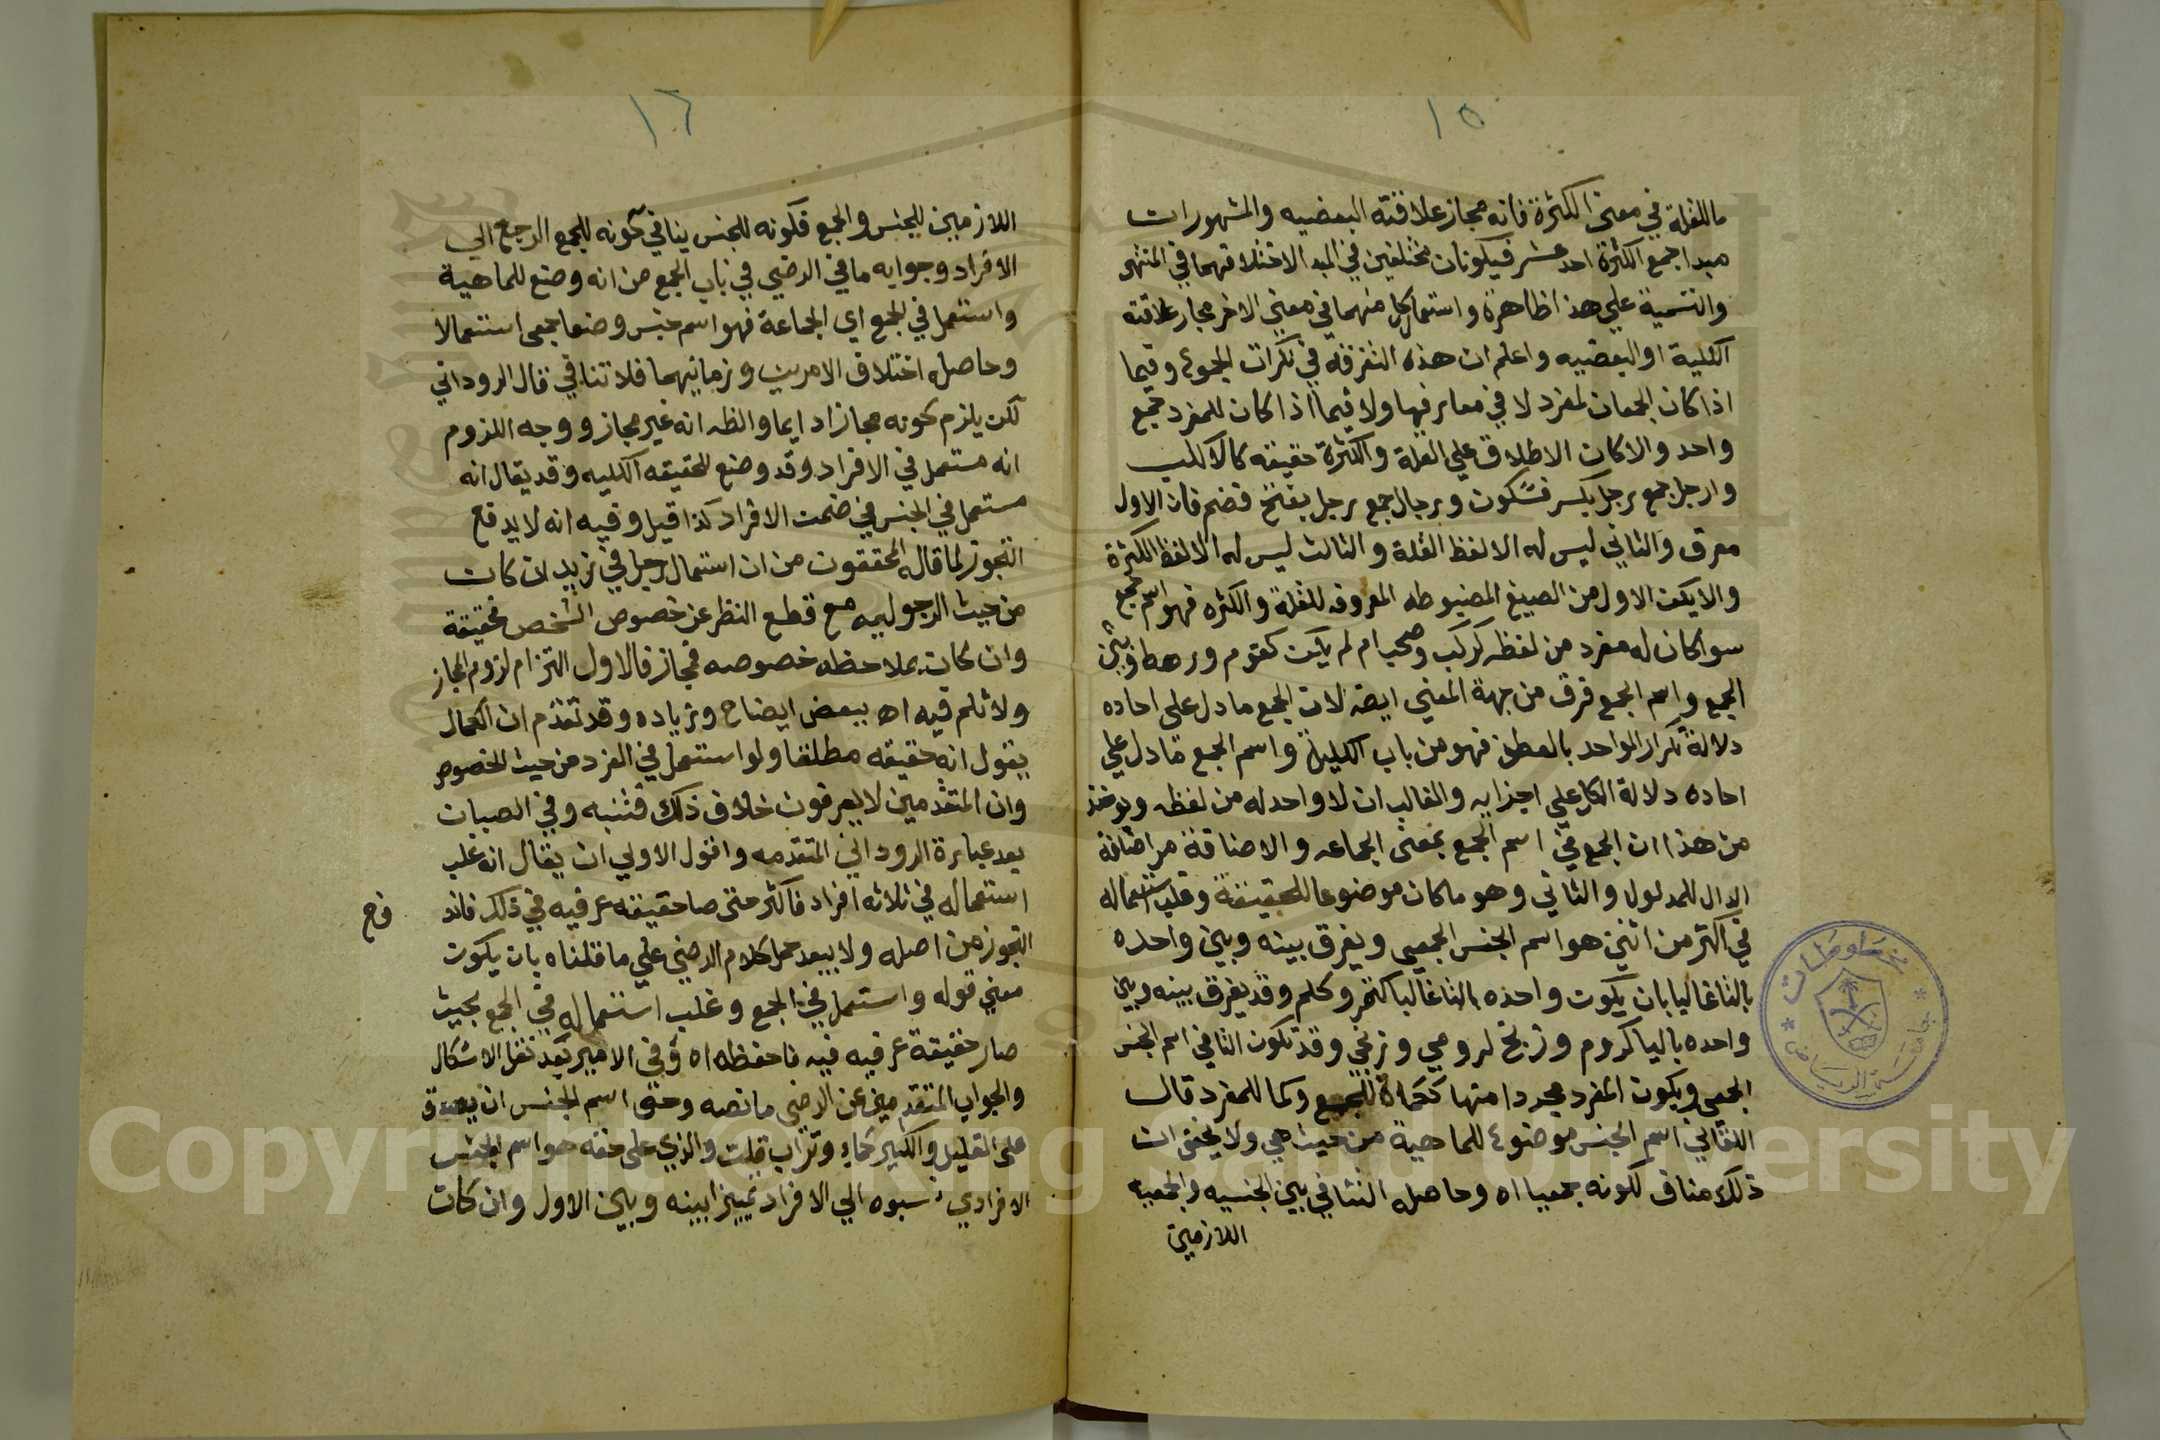 ١٥
ما للقلة في معنى الكثرة فانه مجاز علاقته البعضيه والمشهوران
مبدا جمع الكثرة احد عشر فيكونان مختلفين في المبدا لاختلافهما في المنتهى
والتسمية على هذا ظاهرة واستعمال كل منهما في معنى الاخر مجاز علاقته
الكلية او البعضيه واعلم ان هذه التفرقة في نكرات الجموع وفيما
اذا كان الجمعان لمفرد لا في معارفها ولا فيما اذا كان للمفرد جمع
واحد والا كان الاطلاق على القلة والكثرة حقيقه كالاكلب
وارجل جمع رجل بكسر فسكون ورجال جمع رجل بفتح فضم فان الاول
معرف والثاني ليس له الا لفظ القلة والثالث ليس له الا لفظ الكثرة
والا يكن الاول من الصيغ المضبوطه المعروفه للقلة والكثره فهو اسم جمع
سوا كان له مفرد من لفظه كركب وصحب ام لم يكن كقوم ورهط وبين
الجمع واسم الجمع فرق من جهة المعنى ايضا لان الجمع ما دل على احاده
دلالة تكرار الواحد بالعطف فهو من باب الكلية واسم الجمع ما دل على
احاده دلالة الكل على اجزايه والغالب ان لا واحد له من لفظه ويوخذ
من هذا ان الجمع في اسم الجمع بمعنى الجماعه والاضافة من اضافة
الدال للمدلول والثاني وهو ما كان موضوعا للحقيقة وغلب استعماله
في اكثر من اثنين هو اسم الجنس الجمعي ويفرق بينه وبين واحده
بالتا غالبا بان يكون واحده بالتا غالبا كتمر وكلم وقد يفرق بينه وبين
واحده باليا كروم وزنج لرومي وزنجي وقد تكون التا في اسم الجنس
الجمعي ويكون المفرد مجردا منها ككماة للجمع وكما للمفرد قال
اللقاني اسم الجنس موضوع للماهية من حيث هي ولا يخفى ان
ذلك مناف لكونه جمعيا اه وحاصله التنافي بين الجنسيه والجمعيه
اللازمين
مخطوطات
جامعة الرياض
١٦
اللازمين للجنس والجمع فكونه للجنس ينافي كونه للجمع الرجع الى
الافراد وجوابه ما في الرضي في باب الجمع من انه وضع للماهية
واستعمل في الجمع اي الجماعة فهو اسم جنس وضعا جمعي استعمالا
وحاصله اختلاف الامرين وزمانيهما فلا تنافي قال الروداني
لكن يلزم كونه مجازا دايما والظه انه غير مجاز ووجه اللزوم
انه مستعمل في الافراد وقد وضع للحقيقه الكليه وقد يقال انه
مستعمل في الجنس في ضمن الافراد كذا قيل وفيه انه لا يدفع
التجوز لما قاله المحققون من ان استعمال رجل في زيد ان كان
من حيث الرجوليه مع قطع النظر عن خصوص الشخص فحقيقة
وان كان بملاحظه خصوصه فمجاز فالاول التزام لزوم المجاز
ولا ثلم فيه اه ببعض ايضاح وزياده وقد تقدم ان الكمال
يقول انه حقيقه مطلقا ولو استعمل في الفرد من حيث الخصوص
وان المتقدمين لا يعرفون خلاف ذلك فتنبه وفي الصبان
بعد عبارة الروداني المتقدمه واقول الاولي ان يقال انه غلب
استعماله في ثلاثه افراد فاكثر حتى صا حقيقه عرفيه في ذلك فاند
فع
التجوز من اصله ولا يبعد حمل كلام الرضي على ما قلناه بان يكون
معنى قوله واستعمل في الجمع وغلب استعماله في الجمع بحيث
صار حقيقة عرفيه فيه فاحفظه اه وفي الامير بعد نقل الاشكال
والجواب المتقدمين عن الرضي ما نصه وحق اسم الجنس ان يصدق
على القليل والكثير كماء وتراب قلت والذي على حقه هو اسم الجنس
الافرادي نسبوه الي الافراد تمييزا بينه وبين الاول وان كان
Copyright © King Saud University